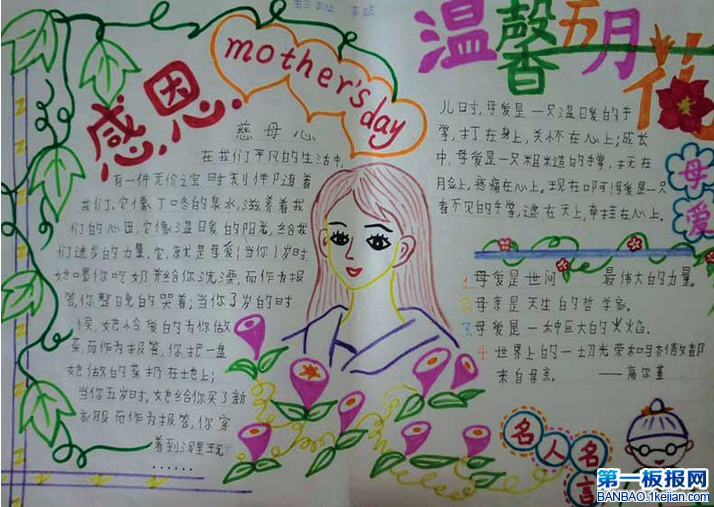 感恩
mother's day
温馨五月花
慈母心
在我们平凡的生活中,
有一件无价之宝时刻伴随着
我们.它像丁咚的泉水,滋养着我
们的心田,它像温暖的阳光,给我
们进步的力量.它就是母爱!当你1岁时,
她喂你吃奶并给你洗澡,而作为报
答,你整晚的哭着;当你了岁的时
候,她怜爱的为你做
菜,而作为报答,你把一盘
她做的菜扔在地上;
当你五岁时,她给你买了新
衣服而作为报答,你穿
着到泥里玩
......
儿时,母爱是一只温暖的手
掌,打在身上,关怀在心上;成长
中,母爱是一只粗糙的手掌,抚在
脸上,疼痛在心上.现在
看不见的手掌,遮在天上,牵挂在心上.
母爱
1.母爱是世间 最伟大的力量.
2.母亲是天生的哲学家.
3.母爱是一种巨大的火焰.
4.世界上的一切光荣和骄傲都
来自母亲. ——高尔基
名人名言
第一板报网
BANBAO.1kejian.com